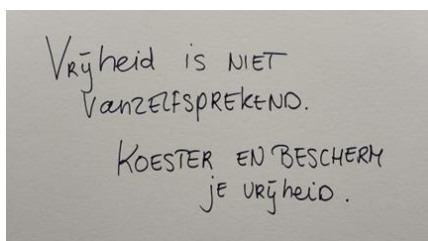 Vrijheid is NIET
VanZELFSPREKEND.
KOESTER EN BESCHERM
jE VRijheiD.